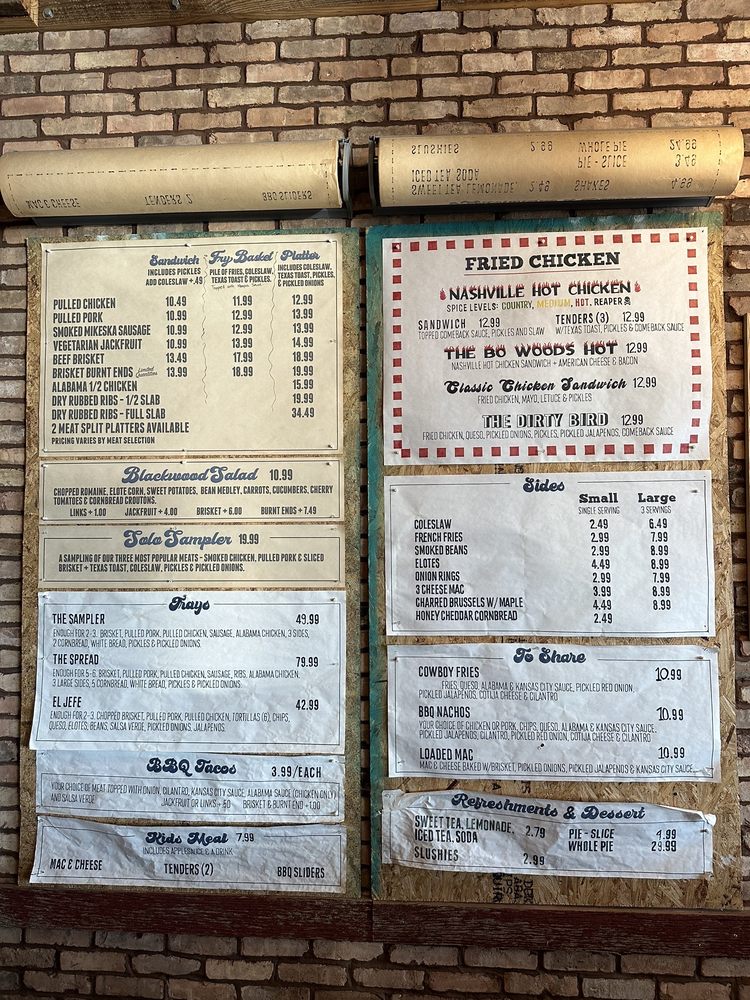 SLUSHIES 2.99 WHOLE PIE 24.99
PIE - SLICE 3.49
ICED TEA, SODA
SWEET TEA, LEMONADE, 2.49 SHAKES 4.99
MAC & CHEESE TENDERS 2 BBQ SLIDERS
Sandwich Fry Basket Platter
INCLUDES PICKLES PILE OF FRIES, COLESLAW, INCLUDES COLESLAW,
ADD COLESLAW +.49 TEXAS TOAST & PICKLES. TEXAS TOAST, PICKLES,
& PICKLED ONIONS
PULLED CHICKEN 10.49 11.99 12.99
PULLED PORK 10.99 12.99 13.99
SMOKED MIKESKA SAUSAGE 10.99 12.99 13.99
VEGETARIAN JACKFRUIT 10.99 13.99 14.99
BEEF BRISKET 13.49 17.99 18.99
BRISKET BURNT ENDS Limited Quantities 13.99 18.99 19.99
ALABAMA 1/2 CHICKEN 15.99
DRY RUBBED RIBS - 1/2 SLAB 19.99
DRY RUBBED RIBS - FULL SLAB 34.49
2 MEAT SPLIT PLATTERS AVAILABLE
PRICING VARIES BY MEAT SELECTION
Blackwood Salad 10.99
CHOPPED ROMAINE, ELOTE CORN, SWEET POTATOES, BEAN MEDLEY, CARROTS, CUCUMBERS, CHERRY
TOMATOES & CORNBREAD CROUTONS.
LINKS + 1.00 JACKFRUIT + 4.00 BRISKET + 6.00 BURNT ENDS + 7.49
Solo Sampler 19.99
A SAMPLING OF OUR THREE MOST POPULAR MEATS - SMOKED CHICKEN, PULLED PORK & SLICED
BRISKET + TEXAS TOAST, COLESLAW, PICKLES & PICKLED ONIONS.
Trays
THE SAMPLER 49.99
ENOUGH FOR 2-3. BRISKET, PULLED PORK, PULLED CHICKEN, SAUSAGE, ALABAMA CHICKEN, 3 SIDES,
2 CORNBREAD, WHITE BREAD, PICKLES & PICKLED ONIONS.
THE SPREAD 79.99
ENOUGH FOR 5-6. BRISKET, PULLED PORK, PULLED CHICKEN, SAUSAGE, RIBS, ALABAMA CHICKEN,
3 LARGE SIDES, 5 CORNBREAD, WHITE BREAD, PICKLES & PICKLED ONIONS
EL JEFE 42.99
ENOUGH FOR 2-3. CHOPPED BRISKET, PULLED PORK, PULLED CHICKEN, TORTILLAS (6), CHIPS,
QUESO, ELOTES, BEANS, SALSA VERDE, PICKLED ONIONS, JALAPENOS.
BBQ Tacos 3.99/EACH
YOUR CHOICE OF MEAT TOPPED WITH ONION, CILANTRO, KANSAS CITY SAUCE, ALABAMA SAUCE (CHICKEN ONLY)
AND SALSA VERDE JACKFRUIT OR LINKS + .50 BRISKET & BURNT END + 1.00
Kids Meal 7.99
INCLUDES APPLESAUCE & A DRINK
MAC & CHEESE TENDERS (2) BBQ SLIDERS
FRIED CHICKEN
NASHVILLE HOT CHICKEN
SPICE LEVELS: COUNTRY, MEDIUM, HOT, REAPER
SANDWICH 12.99 TENDERS (3) 12.99
TOPPED COMEBACK SAUCE, PICKLES AND SLAW W/TEXAS TOAST, PICKLES & COMEBACK SAUCE
THE BO WOODS HOT 12.99
NASHVILLE HOT CHICKEN SANDWICH + AMERICAN CHEESE & BACON
Classic Chicken Sandwich 12.99
FRIED CHICKEN, MAYO, LETUCE & PICKLES
THE DIRTY BIRD 12.99
FRIED CHICKEN, QUESO, PICKLED ONIONS, PICKLES, PICKLED JALAPENOS, COMEBACK SAUCE
Sides
Small Large
SINGLE SERVING 3 SERVINGS
COLESLAW 2.49 6.49
FRENCH FRIES 2.99 7.99
SMOKED BEANS 2.99 8.99
ELOTES 4.49 8.99
ONION RINGS 2.99 7.99
3 CHEESE MAC 3.99 8.99
CHARRED BRUSSELS W/ MAPLE 4.49 8.99
HONEY CHEDDAR CORNBREAD 2.49
To Share
COWBOY FRIES 10.99
FRIES, QUESO, ALABAMA & KANSAS CITY SAUCE, PICKLED RED ONION,
PICKLED JALAPENOS, COTIJA CHEESE & CILANTRO
BBQ NACHOS 10.99
YOUR CHOICE OF CHICKEN OR PORK, CHIPS, QUESO, ALABAMA & KANSAS CITY SAUCE,
PICKLED JALAPENOS, CILANTRO, PICKLED RED ONION, COTIJA CHEESE & CILANTRO
LOADED MAC 10.99
MAC & CHEESE BAKED W/BRISKET, PICKLED ONIONS, PICKLED JALAPENOS & KANSAS CITY SAUCE
Refreshments & Dessert
SWEET TEA, LEMONADE, 2.79 PIE - SLICE 4.99
ICED TEA, SODA WHOLE PIE 29.99
SLUSHIES 2.99